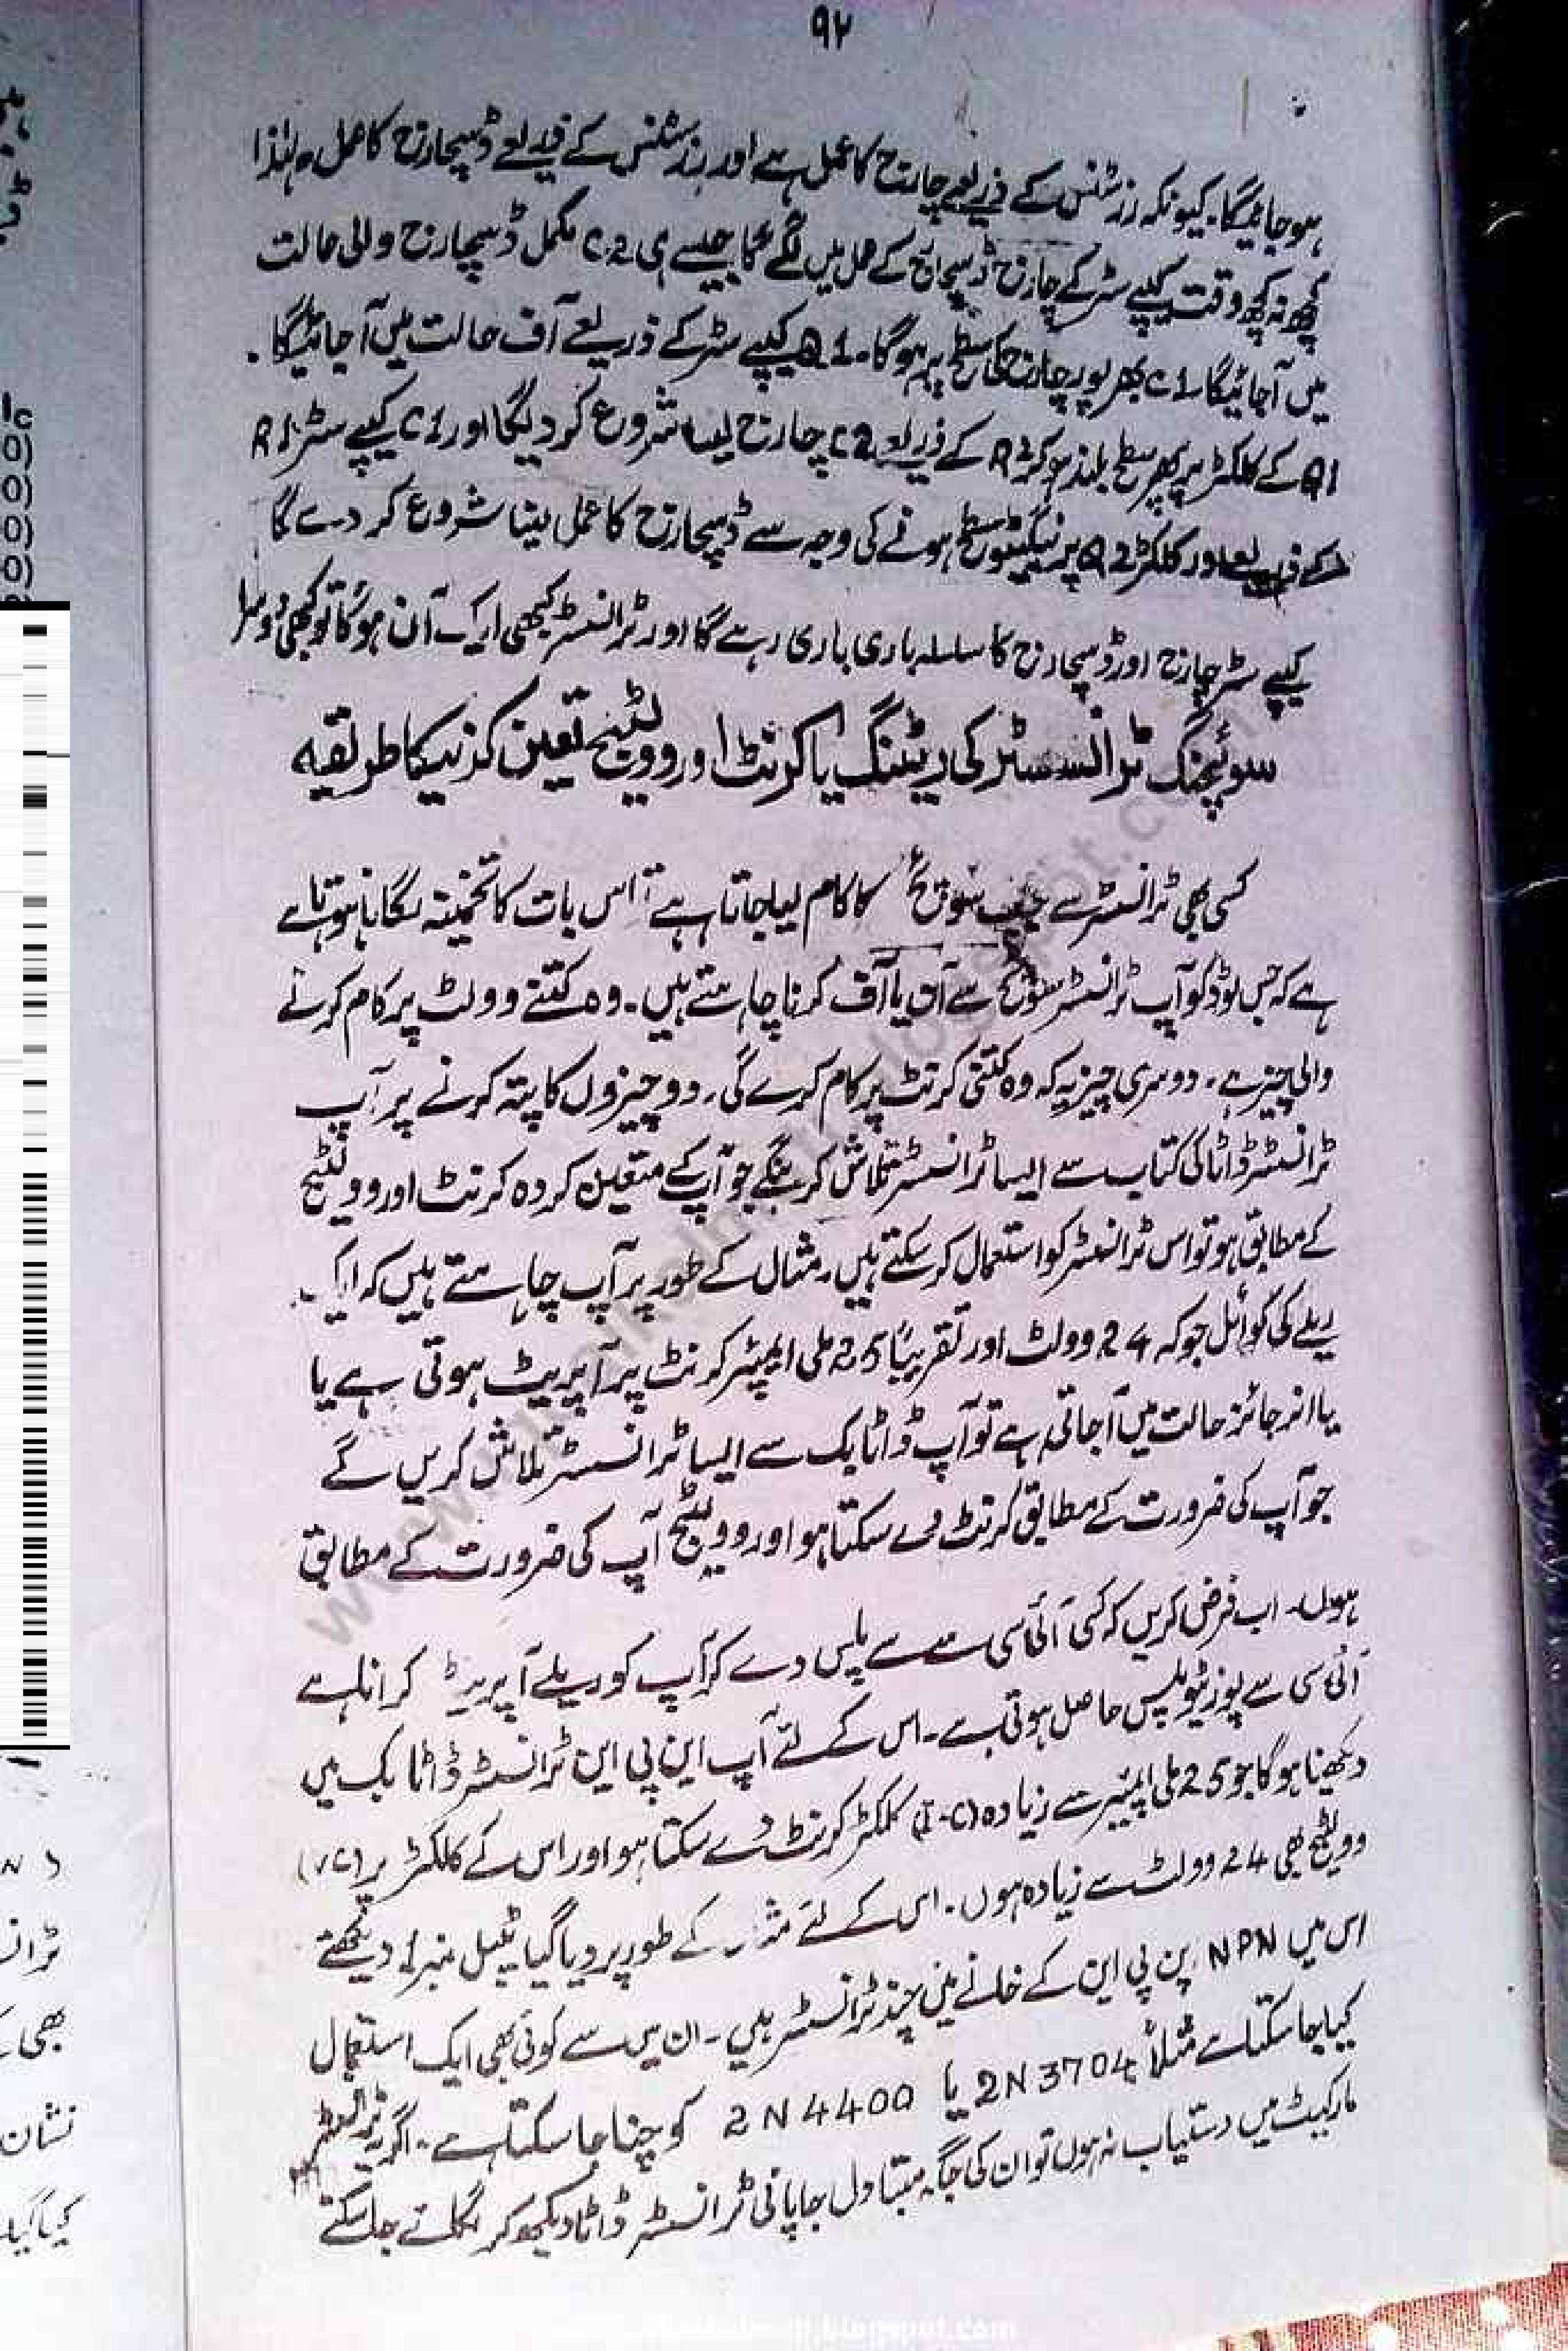 ۹۲
ہو جائیگا۔ کیونکہ رزسٹنس کے ذریعے چارج کا عمل ہے اور رزسٹنس کے ذریعے ڈسچارج کا عمل۔ لہٰذا
کچھ نہ کچھ وقت کیپے سٹر کے چارج ڈسچارج کے عمل میں لگے گا جیسے ہی C2 مکمل ڈسچارج والی حالت
میں آجائیگا C1 بھرپور چارج کی سطح پر ہوگا۔ Q1 کیپے سٹر کے ذریعے آف حالت میں آجائیگا۔
Q1 کے کلکٹر پر پھر سطح بلند ہو کر کے ذریعہ C2 چارج لینا شروع کر دیگا اور C1 کیپے سٹر R1
کے ذریعے اور کلکٹر Q2 پر نیگٹیو سطح ہونے کی وجہ سے ڈسچارج کا عمل لینا شروع کر دے گا
کیپے سٹر چارج اور ڈسچارج کا سلسلہ باری باری رہے گا اور ٹرانسسٹر کبھی ایک آن ہوگا تو کبھی دوسرا
سوئچنگ ٹرانسسٹر کی ریٹنگ یا کرنٹ اور وولٹیج تعین کرنیکا طریقہ
کسی بھی ٹرانسسٹر سے جب سوئچ کا کام لیا جاتا ہے تو اس بات کا تخمینہ لگانا ہوتا ہے
ہے کہ جس لوڈ کو آپ ٹرانسسٹر سوئچ سے آن یا آف کرنا چاہتے ہیں۔ وہ کتنے وولٹ پر کام کرنے
والی چیز ہے۔ دوسری چیز یہ کہ وہ کتنی کرنٹ پر کام کرے گی۔ دو چیزوں کا پتہ کرنے پر آپ
ٹرانسسٹر ڈاٹا کی کتاب سے ایسا ٹرانسسٹر تلاش کرینگے جو آپکے متعین کردہ کرنٹ اور وولٹیج
کے مطابق ہو تو اس ٹرانسسٹر کو استعمال کر سکتے ہیں۔ مثال کے طور پر آپ چاہتے ہیں کہ ایک
ریلے کی کوائل جو کہ 24 وولٹ اور تقریباً 25 ملی ایمپئر کرنٹ پر آپریٹ ہوتی ہے یا
یا انرجائز حالت میں آجاتی ہے تو آپ ڈاٹا بک سے ایسا ٹرانسسٹر تلاش کریں گے
جو آپ کی ضرورت کے مطابق کرنٹ دے سکتا ہو اور وولٹیج آپ کی ضرورت کے مطابق
ہوں۔ اب فرض کریں کہ کسی آئی سی سے پلس دے کر آپ کو ریلے آپریٹ کرانا ہے
آئی سی سے پوزیٹو پلس حاصل ہوتی ہے۔ اس کے لئے آپ این پی این ٹرانسسٹر ڈاٹا بک میں
دیکھنا ہوگا جو 25 ملی ایمپئیر سے زیادہ (I-C) کلکٹر کرنٹ دے سکتا ہو اور اس کے کلکٹر پر (VC)
وولٹیج بھی 24 وولٹ سے زیادہ ہوں۔ اس کے لئے کے طور پر دیا گیا ٹیبل نمبر دیکھئے
اس میں NPN این پی این کے خانے میں چند ٹرانسسٹر ہیں۔ ان میں سے کوئی بھی ایک استعمال
کیا جا سکتا ہے مثلاً 2N3704 یا 2N4400 کو چنا جا سکتا ہے۔ اگر یہ ٹرانسسٹر
مارکیٹ میں دستیاب نہ ہوں تو ان کی جگہ متبادل جاپانی ٹرانسسٹر ڈاٹا دیکھ کر لگائے جا سکتے